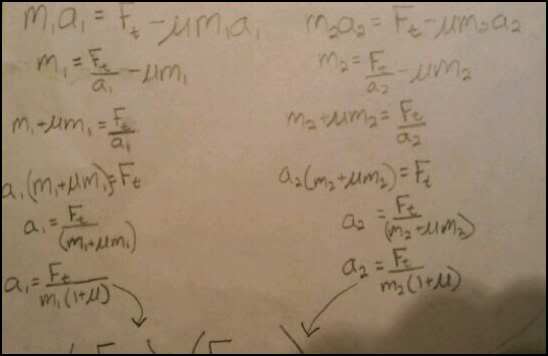 m₁a₁ = Fₜ - μm₁a₁
m₁ = Fₜ/a₁ - μm₁
m₁ + μm₁ = Fₜ/a₁
a₁(m₁ + μm₁) = Fₜ
a₁ = Fₜ/(m₁ + μm₁)
a₁ = Fₜ/m₁(1 + μ)
m₂a₂ = Fₜ - μm₂a₂
m₂ = Fₜ/a₂ - μm₂
m₂ + μm₂ = Fₜ/a₂
a₂(m₂ + μm₂) = Fₜ
a₂ = Fₜ/(m₂ + μm₂)
a₂ = Fₜ/m₂(1 + μ)